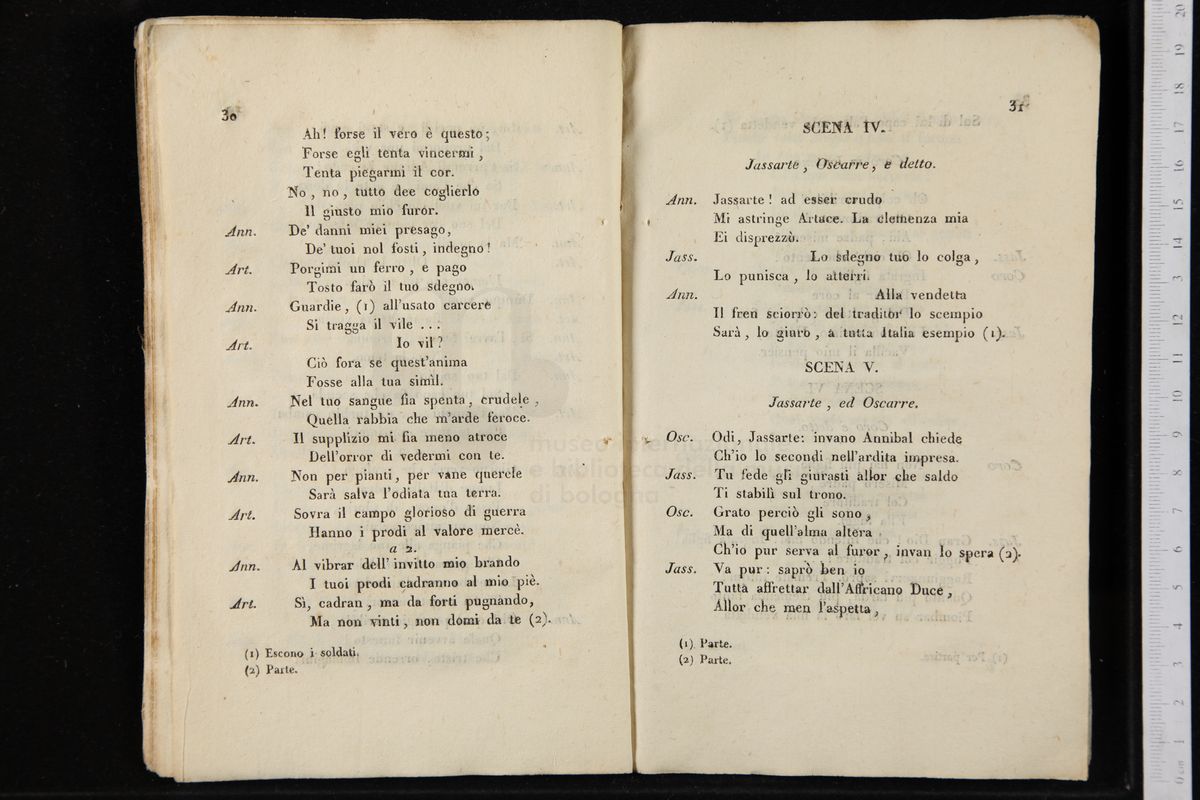 30
Ah! forse il vero è questo;
Forse egli tenta vincermi,
Tenta piegarmi il cor.
No, no, tutto dee coglierlo
Il giusto mio furor.
Ann. De' danni miei presago,
De' tuoi nol fosti, indegno!
Art. Porgimi un ferro, e pago
Tosto farò il tuo sdegno.
Ann. Guardie, (1) all'usato carcere
Si tragga il vile ...
Art. Io vil?
Ciò fora se quest'anima
Fosse alla tua simil.
Ann. Nel tuo sangue fia spenta, crudele,
Quella rabbia che m'arde feroce.
Art. Il supplizio mi fia meno atroce
Dell'orror di vedermi con te.
Ann. Non per pianti, per vane querele
Sarà salva l'odiata tua terra.
Art. Sovra il campo glorioso di guerra
Hanno i prodi al valore mercè.
a 2.
Ann. Al vibrar dell' invitto mio brando
I tuoi prodi cadranno al mio piè.
Art. Sì, cadran, ma da forti pugnando,
Ma non vinti, non domi da te (2).
(1) Escono i soldati.
(2) Parte.
31
SCENA IV.
Jassarte, Oscarre, e detto.
Ann. Jassarte! ad esser crudo
Mi astringe Artace. La clemenza mia
Ei disprezzò.
Jass. Lo sdegno tuo lo colga,
Lo punisca, lo atterri.
Ann. Alla vendetta
Il fren sciorrò: del traditor lo scempio
Sarà, lo giuro, a tutta Italia esempio (1).
SCENA V.
Jassarte, ed Oscarre.
Osc. Odi, Jassarte: invano Annibal chiede
Ch'io lo secondi nell'ardita impresa.
Jass. Tu fede gli giurasti allor che saldo
Ti stabilì sul trono.
Osc. Grato perciò gli sono,
Ma di quell'alma altera
Ch'io pur serva al furor, invan lo spera (2).
Jass. Va pur: saprò ben io
Tutta affrettar dall'Affricano Duce,
Allor che men l'aspetta,
(1) Parte.
(2) Parte.